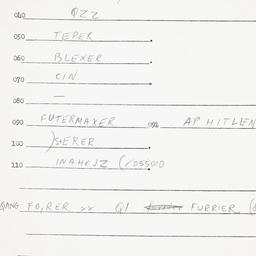 040 QZZ
050 TEPER
060 BLEXER
070 CIN
080 —
090 FUTERMAXER 091 AP HITLEN
100 )S+ERER
110 INAHEJZ (/055010
QANG FO,RER >x Q1 FURRIER (